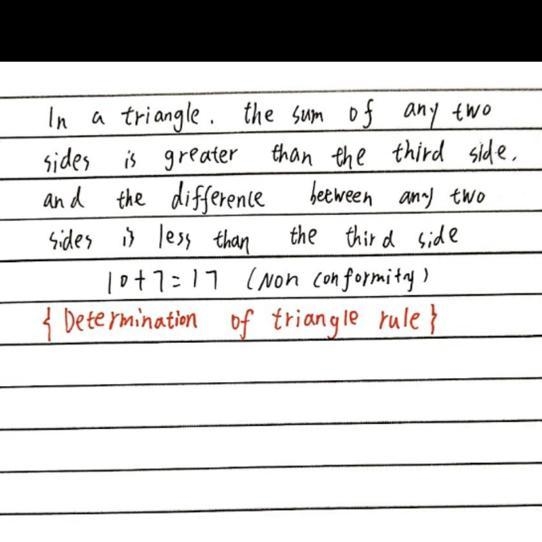 In a triangle. the sum of any two
sides is greater than the third side.
and the difference between any two
sides is less than the third side
10+7=17 (Non conformity)
{Determination of triangle rule}